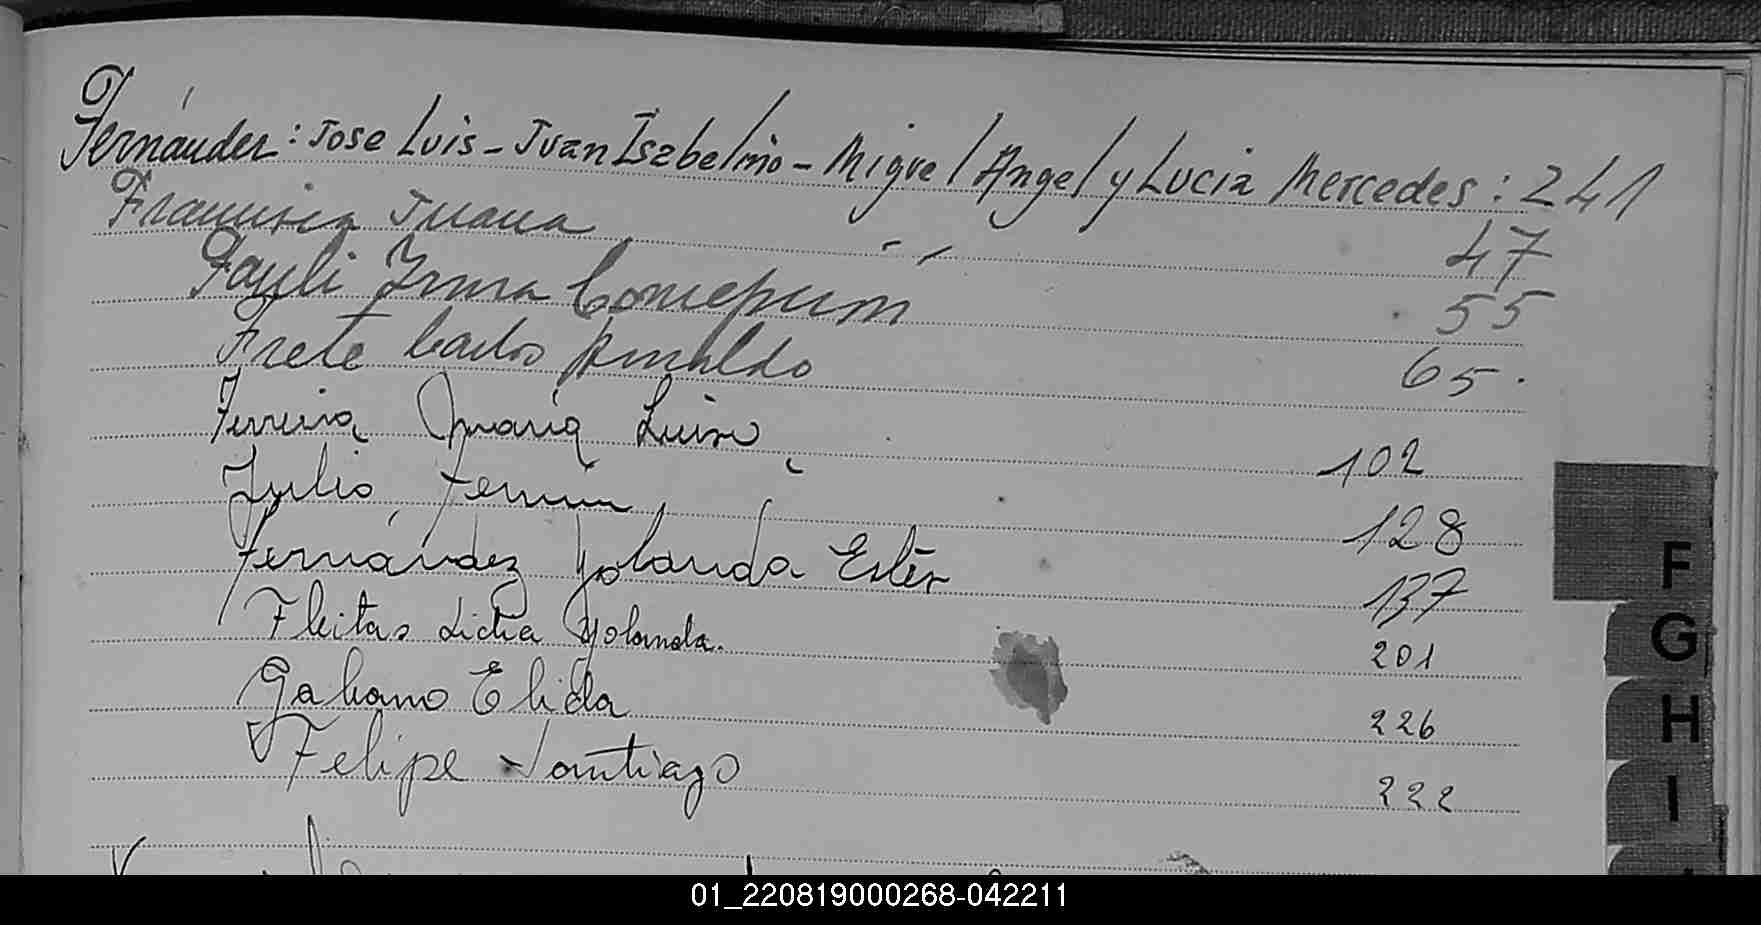 Fernández: Jose Luis - Juan Isabelino - Miguel Angel y Lucia Mercedes: 241
Francisca Juana 47
Irma Concepción 55
Frete Carlos Arnaldo 65.
Ferreira María Luisa 102
Julio Fermin 128
Fernández Yolanda Ester 137
Fleitas Lidia Yolanda. 201
Galiano Elida 226
Felipe Santiago 222
F
G
H
I
01_220819000268-042211